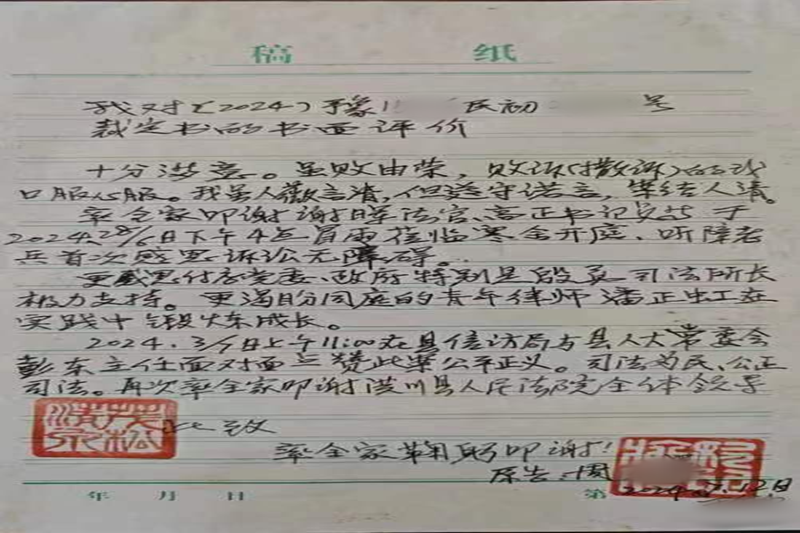 稿 纸
我对(2024)豫11 民初 号
裁定书的书面评价
十分满意。虽败由荣,败诉(撤诉)的我
口服心服。我虽人微言清,但遵守诺言,
率全家叩谢谢 法官、 正书记员 于
2024.28/6日下午4点冒雨莅临寒舍开庭、听障老
兵首次感恩诉讼无障碍。
更感恩 党委、政府特别是殷 司法所长
极力支持。更渴盼同庭的青年律师潘正 在
实践中锻炼成长。
2024. 3/ 日上午11:00在县信访局与县人大常委会
彭东主任面对面 赞此案公平正义。司法为民、公正
司法。再次率全家叩谢潢川县人民法院全体领导
此致
率全家鞠躬叩谢!
原告:周
年 月 日 第
2024. 12日